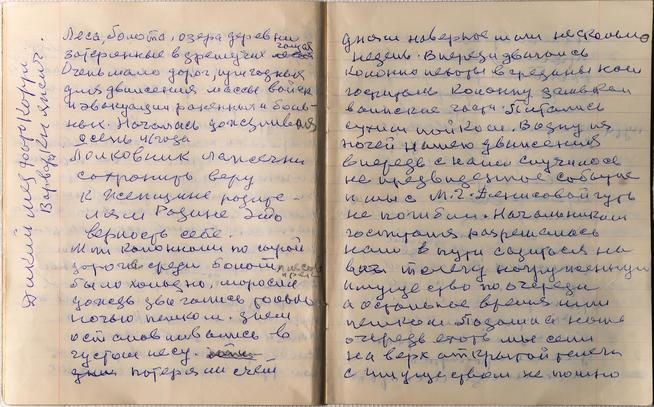 Леса, болота, озера деревни
затеренные в дремучих чащах
Очень мало дорог, пригодных
для движения массы войск
и эвакуации раненных и боль-
ных. Началась дождливая
осень 41 года
Полковник
сохранить веру
к Женщине родите-
лям Родине Это
верность себе.
Шли колоннами по сырой
дороге среди болот
было холодно, моросил
дождь двигались только
ночью пешком. днем
останавливались во
густом лесу.
дням потеряли счет
Дикий мед
днями наверное шли несколько
недель. Впереди двигались
колонно пехота в средине наш
госпиталь Колонну замыкали
воинские части. Питались
сухим пайком. В одну из
ночей нашего движения
вперед с нами случилось
не предвиденное событие
и мы с М.Г. Денисовой чуть
не погибли. Начальником
госпиталя разрешалось
нам в пути садиться на
телегу нагруженную
имуществом по очереди
а остальное время шли
пешком. Подошла наша
очередь ехать мы сели
на верх открытой телеги
с имуществом не помню